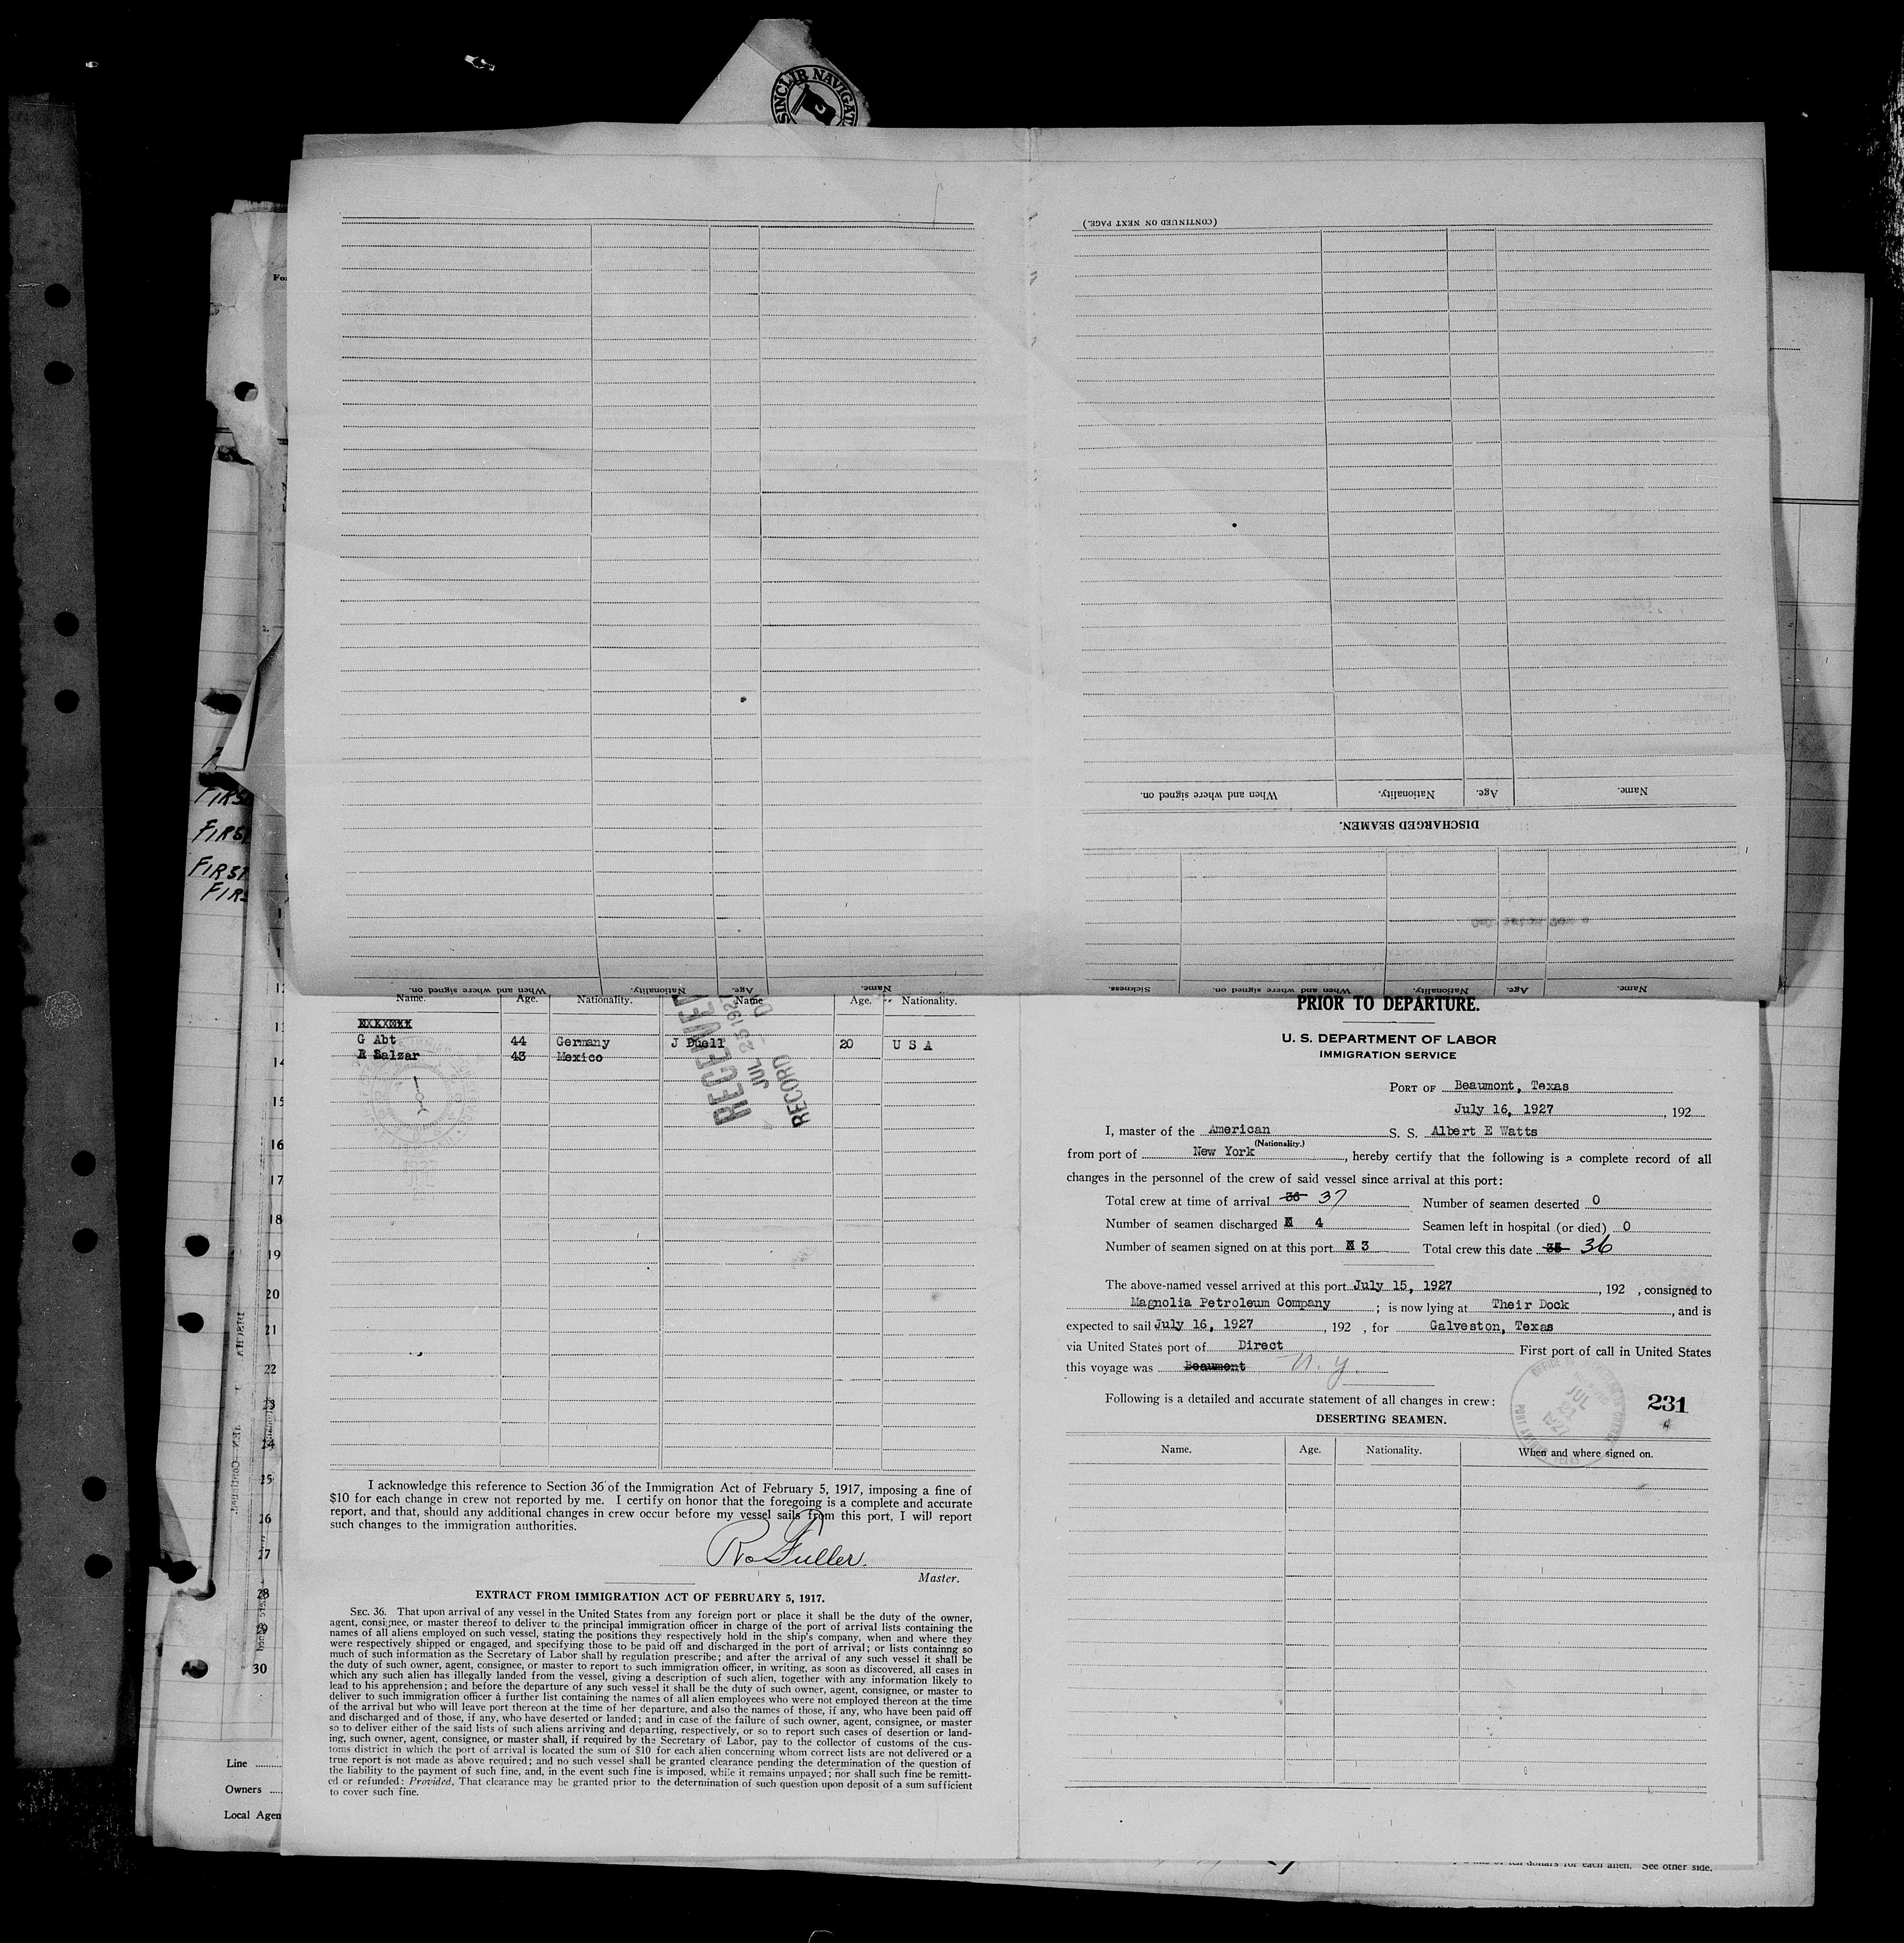 SINCLIR NAVIGAT
(CONTINUED ON NEXT PAGE.)
When and where signed on. Nationality. Age. Name.
DISCHARGED SEAMEN.
When and where signed on. Nationality. Age. Name.
Sickness. When and where signed on. Nationality. Age. Name.
FIRS
FIRS
FIRST
FIRS
Name. Age. Nationality. Name Age. Nationality.
G Abt 44 Germany J Duell 20 U S A
R Salzar 43 Mexico
RECEIVED
JUL 25 1927
RECORD
12
13
14
15
16
17
18
19
20
21
22
23
24
25
26
27
28
29
30
Line
Owners
Local Agen
I acknowledge this reference to Section 36 of the Immigration Act of February 5, 1917, imposing a fine of
$10 for each change in crew not reported by me. I certify on honor that the foregoing is a complete and accurate
report, and that, should any additional changes in crew occur before my vessel sails from this port, I will report
such changes to the immigration authorities.
R. Fuller.
Master.
EXTRACT FROM IMMIGRATION ACT OF FEBRUARY 5, 1917.
SEC. 36. That upon arrival of any vessel in the United States from any foreign port or place it shall be the duty of the owner,
agent, consignee, or master thereof to deliver to the principal immigration officer in charge of the port of arrival lists containing the
names of all aliens employed on such vessel, stating the positions they respectively hold in the ship's company, when and where they
were respectively shipped or engaged, and specifying those to be paid off and discharged in the port of arrival; or lists containng so
much of such information as the Secretary of Labor shall by regulation prescribe; and after the arrival of any such vessel it shall be
the duty of such owner, agent, consignee, or master to report to such immigration officer, in writing, as soon as discovered, all cases in
which any such alien has illegally landed from the vessel, giving a description of such alien, together with any information likely to
lead to his apprehension; and before the departure of any such vessel it shall be the duty of such owner, agent, consignee, or master to
deliver to such immigration officer a further list containing the names of all alien employees who were not employed thereon at the time
of the arrival but who will leave port thereon at the time of her departure, and also the names of those, if any, who have been paid off
and discharged and of those, if any, who have deserted or landed; and in case of the failure of such owner, agent, consignee, or master
so to deliver either of the said lists of such aliens arriving and departing, respectively, or so to report such cases of desertion or land-
ing, such owner, agent, consignee, or master shall, if required by the Secretary of Labor, pay to the collector of customs of the cus-
toms district in which the port of arrival is located the sum of $10 for each alien concerning whom correct lists are not delivered or a
true report is not made as above required; and no such vessel shall be granted clearance pending the determination of the question of
the liability to the payment of such fine, and, in the event such fine is imposed, while it remains unpayed; nor shall such fine be remitt-
ed or refunded: Provided, That clearance may be granted prior to the determination of such question upon deposit of a sum sufficient
to cover such fine.
PRIOR TO DEPARTURE.
U. S. DEPARTMENT OF LABOR
IMMIGRATION SERVICE
PORT OF Beaumont, Texas
July 16, 1927, 192
I, master of the American S. S. Albert E Watts
(Nationality.)
from port of New York, hereby certify that the following is a complete record of all
changes in the personnel of the crew of said vessel since arrival at this port:
Total crew at time of arrival 36 37 Number of seamen deserted 0
Number of seamen discharged 4 Seamen left in hospital (or died) 0
Number of seamen signed on at this port 3 Total crew this date 35 36
The above-named vessel arrived at this port July 15, 1927, 192 , consigned to
Magnolia Petroleum Company ; is now lying at Their Dock, and is
expected to sail July 16, 1927, 192 , for Galveston, Texas
via United States port of Direct First port of call in United States
this voyage was Beaumont N. Y.
Following is a detailed and accurate statement of all changes in crew:
231
DESERTING SEAMEN.
Name. Age. Nationality. When and where signed on.
of ten dollars for each alien. See other side.